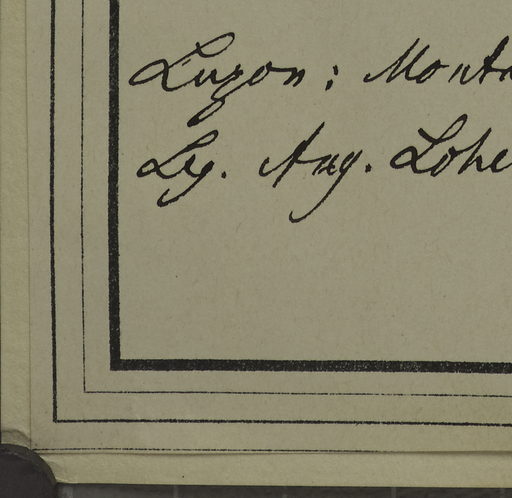 Luzon: Monta
Leg. Aug. Lohe